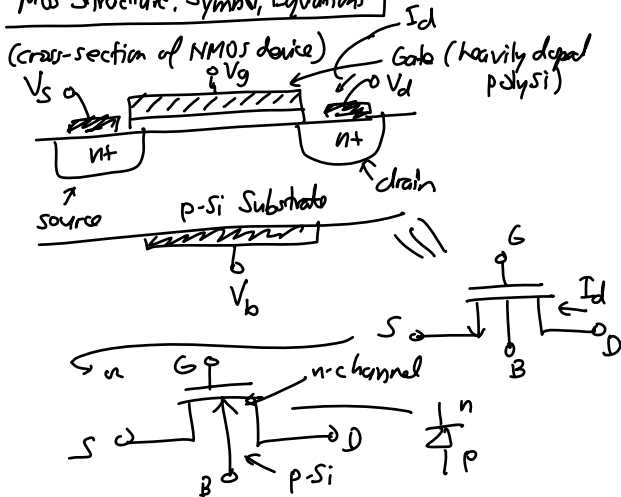 MOS Structure, Symbol, Equations
(cross-section of NMOS device)
Id
Vs
Vg
Gate (heavily doped
polySi)
Vd
n+
n+
source
drain
p-Si Substrate
Vb
G
Id
S
B
D
or
G
n-channel
S
D
B
p-Si
n
p